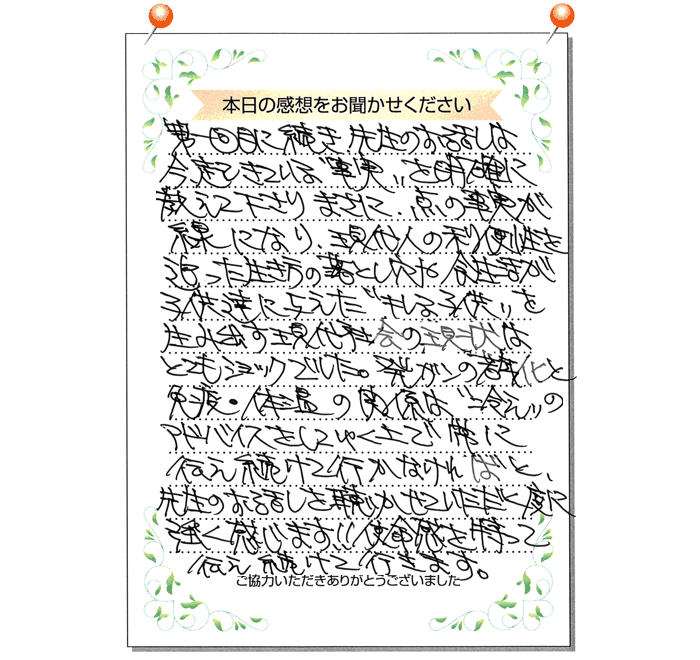 本日の感想をお聞かせください
第一回目に続き先生のお話しは
今起きている"事実"を明確に
教えて下さり まさに、点の事実が
線になり、現代人の利便性を
追った生き方の落としてた 食生活が
子供達に与えた"キレる子供"を
生み出す現代社会の現状は
とてもショックでした。発ガンの
免疫・体温の関係は"冷え"の
アドバイスをしてゆく上で常に
伝え続けて行かなければと、
先生のお話しを聴かせていただく度に
強く感じます!!使命感を持って
伝え続けて行きます。
ご協力いただきありがとうございました